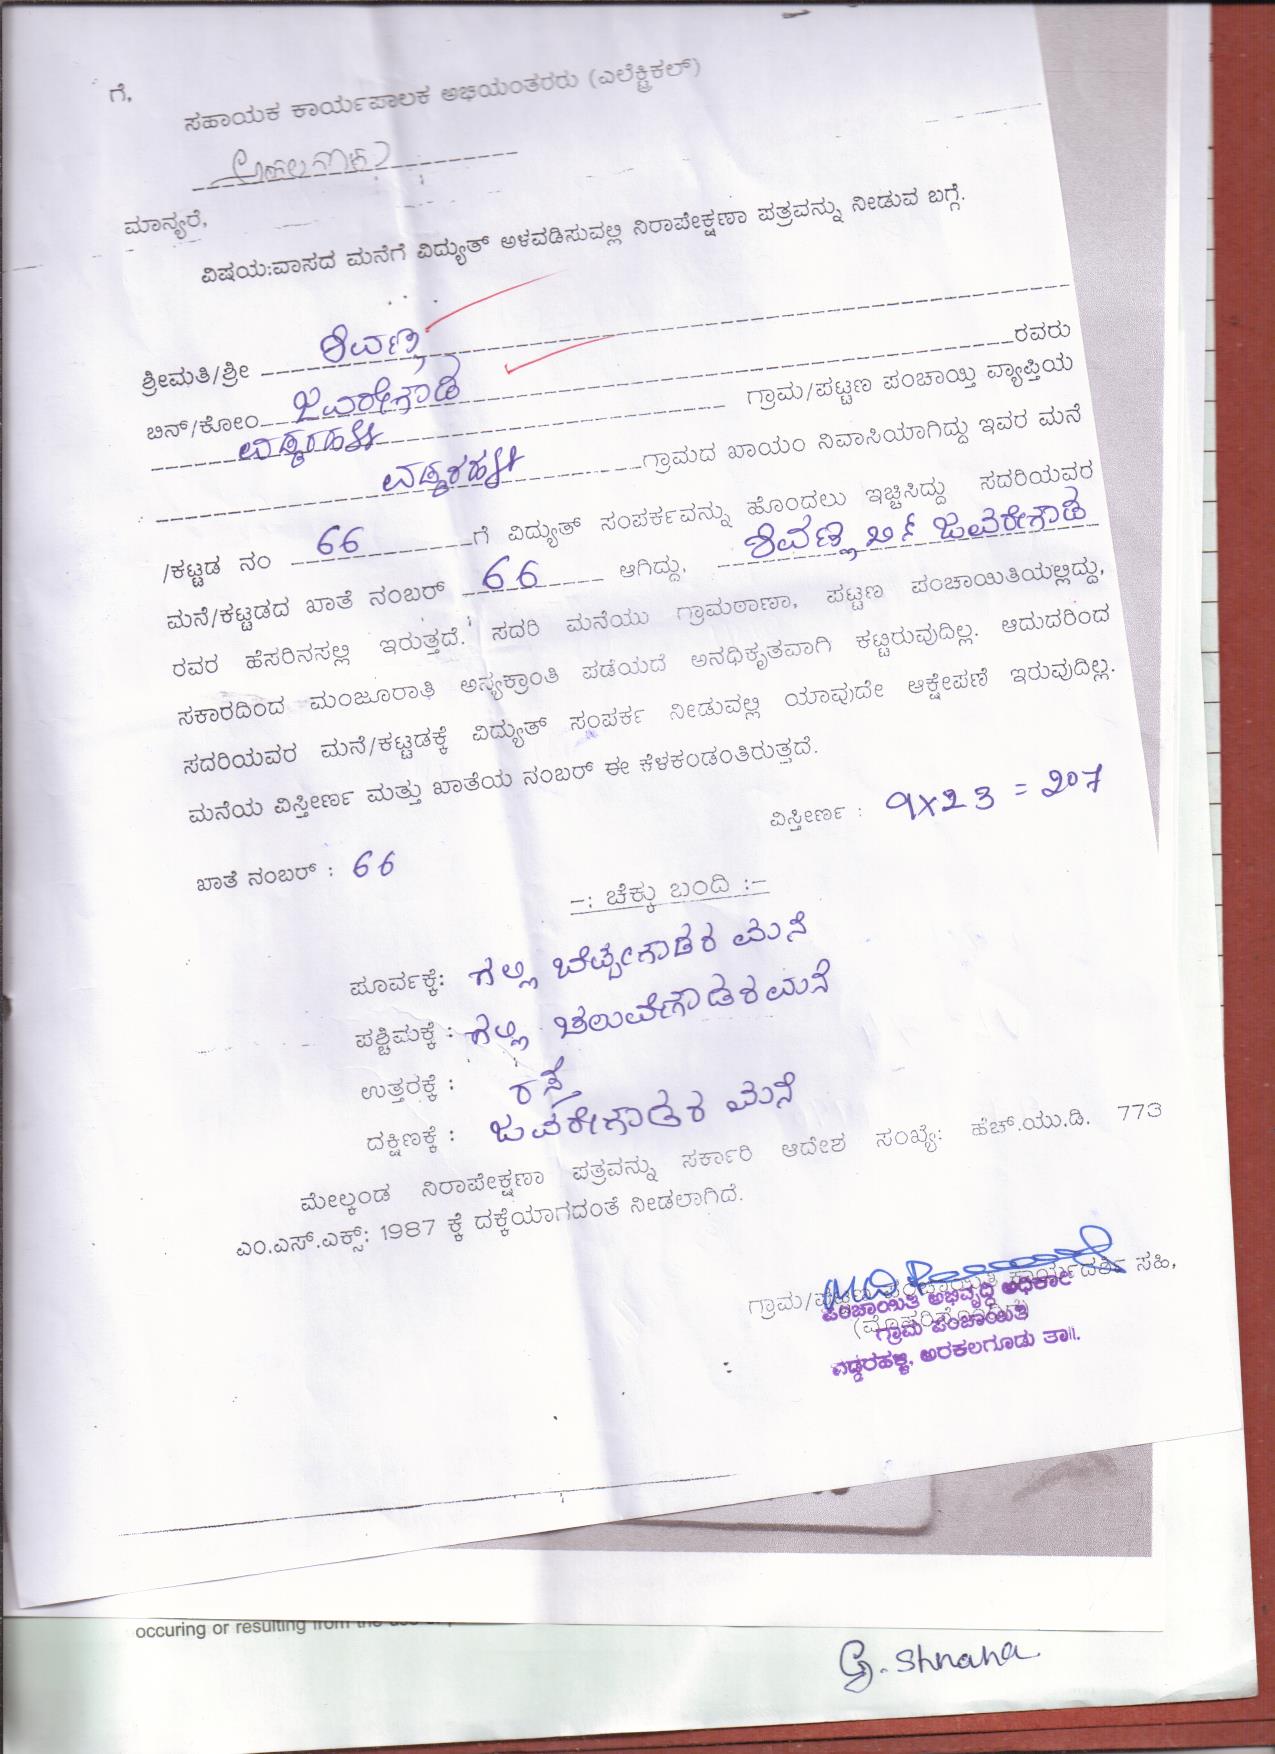 ಗೆ,
ಸಹಾಯಕ ಕಾರ್ಯಪಾಲಕ ಅಭಿಯಂತರರು (ಎಲೆಕ್ಟ್ರಿಕಲ್)
ಮಾನ್ಯರೆ,
ವಿಷಯ:ವಾಸದ ಮನೆಗೆ ವಿದ್ಯುತ್ ಅಳವಡಿಸುವಲ್ಲಿ ನಿರಾಪೇಕ್ಷಣಾ ಪತ್ರವನ್ನು ನೀಡುವ ಬಗ್ಗೆ.
ಶ್ರೀಮತಿ/ಶ್ರೀ ಶಿವಣ್ಣ
ಬಿನ್/ಕೋಂ ಜವರೇಗೌಡ ರವರು
ವಡ್ಡರಹಳ್ಳಿ ಗ್ರಾಮ/ಪಟ್ಟಣ ಪಂಚಾಯ್ತಿ ವ್ಯಾಪ್ತಿಯ
ವಡ್ಡರಹಳ್ಳಿ ಗ್ರಾಮದ ಖಾಯಂ ನಿವಾಸಿಯಾಗಿದ್ದು ಇವರ ಮನೆ
/ಕಟ್ಟಡ ನಂ 66 ಗೆ ವಿದ್ಯುತ್ ಸಂಪರ್ಕವನ್ನು ಹೊಂದಲು ಇಚ್ಚಿಸಿದ್ದು ಸದರಿಯವರ
ಮನೆ/ಕಟ್ಟಡದ ಖಾತೆ ನಂಬರ್ 66 ಆಗಿದ್ದು, ಶಿವಣ್ಣ ಬಿನ್ ಜವರೇಗೌಡ
ರವರ ಹೆಸರಿನಸಲ್ಲಿ ಇರುತ್ತದೆ. ಸದರಿ ಮನೆಯು ಗ್ರಾಮಠಾಣಾ, ಪಟ್ಟಣ ಪಂಚಾಯಿತಿಯಲ್ಲಿದ್ದು,
ಸಕಾರದಿಂದ ಮಂಜೂರಾತಿ ಅಸ್ಯಕ್ರಾಂತಿ ಪಡೆಯದೆ ಅನಧಿಕೃತವಾಗಿ ಕಟ್ಟಿರುವುದಿಲ್ಲ. ಆದುದರಿಂದ
ಸದರಿಯವರ ಮನೆ/ಕಟ್ಟಡಕ್ಕೆ ವಿದ್ಯುತ್ ಸಂಪರ್ಕ ನೀಡುವಲ್ಲಿ ಯಾವುದೇ ಆಕ್ಷೇಪಣೆ ಇರುವುದಿಲ್ಲ.
ಮನೆಯ ವಿಸ್ತೀರ್ಣ ಮತ್ತು ಖಾತೆಯ ನಂಬರ್ ಈ ಕೆಳಕಂಡಂತಿರುತ್ತದೆ.
ಖಾತೆ ನಂಬರ್ : 66 ವಿಸ್ತೀರ್ಣ : 9x23 = 207
-: ಚೆಕ್ಕು ಬಂದಿ :-
ಪೂರ್ವಕ್ಕೆ: ಗಲ್ಲಿ ಬೆಟ್ಟೇಗೌಡರ ಮನೆ
ಪಶ್ಚಿಮಕ್ಕೆ : ಗಲ್ಲಿ ಚಲುವೇಗೌಡರ ಮನೆ
ಉತ್ತರಕ್ಕೆ : ರಸ್ತೆ
ದಕ್ಷಿಣಕ್ಕೆ : ಜವರೇಗೌಡರ ಮನೆ
ಮೇಲ್ಕಂಡ ನಿರಾಪೇಕ್ಷಣಾ ಪತ್ರವನ್ನು ಸರ್ಕಾರಿ ಆದೇಶ ಸಂಖ್ಯೆ: ಹೆಚ್.ಯು.ಡಿ. 773
ಎಂ.ಎಸ್.ಎಕ್ಸ್: 1987 ಕ್ಕೆ ದಕ್ಕೆಯಾಗದಂತೆ ನೀಡಲಾಗಿದೆ.
ಗ್ರಾಮ/ಪಟ್ಟಣ ಪಂಚಾಯಿತಿ ಕಾರ್ಯದರ್ಶಿ ಸಹಿ,
ಪಂಚಾಯಿತಿ ಅಭಿವೃದ್ಧಿ ಅಧಿಕಾರಿ
(ಮೊಹರಿನೊಂದಿಗೆ)
ಗ್ರಾಮ ಪಂಚಾಯಿತಿ
ವಡ್ಡರಹಳ್ಳಿ, ಅರಕಲಗೂಡು ತಾ||.
occuring or resulting from the use